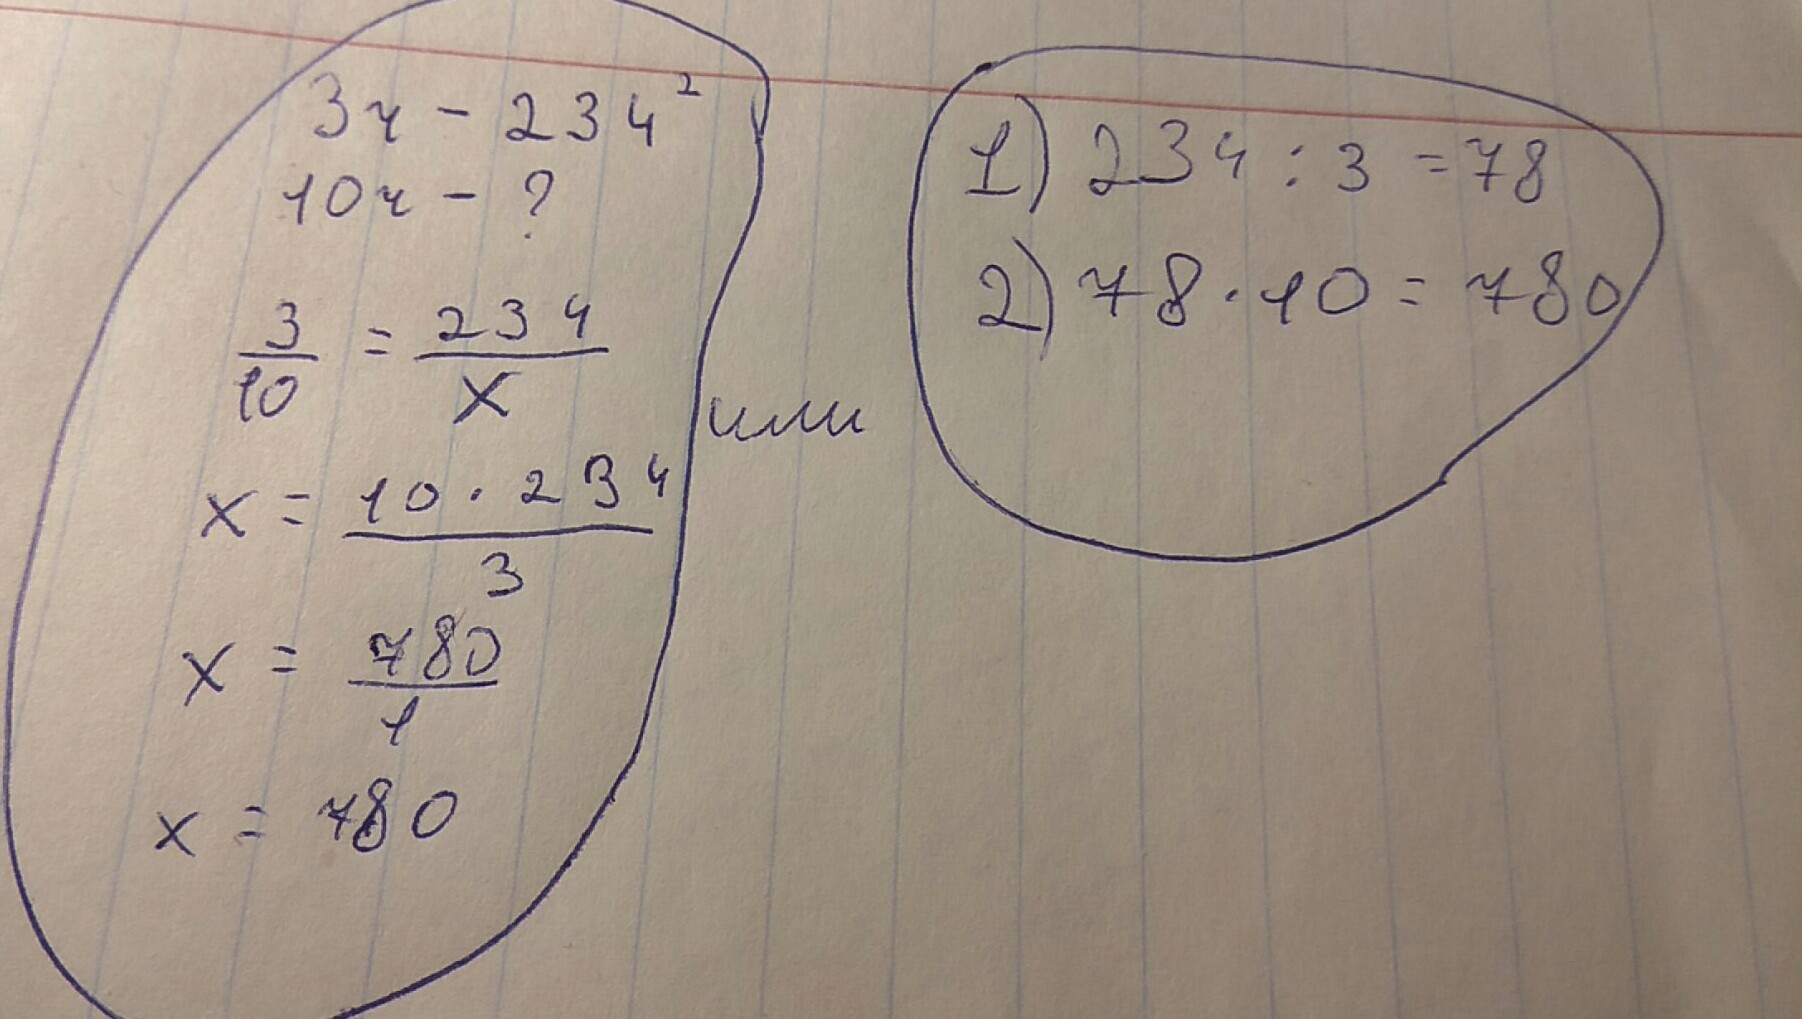 3ч - 234²
10ч - ?
3/10 = 234/x
x = 10 · 234/3
x = 780/1
x = 780
или
1) 234 : 3 = 78
2) 78 · 10 = 780